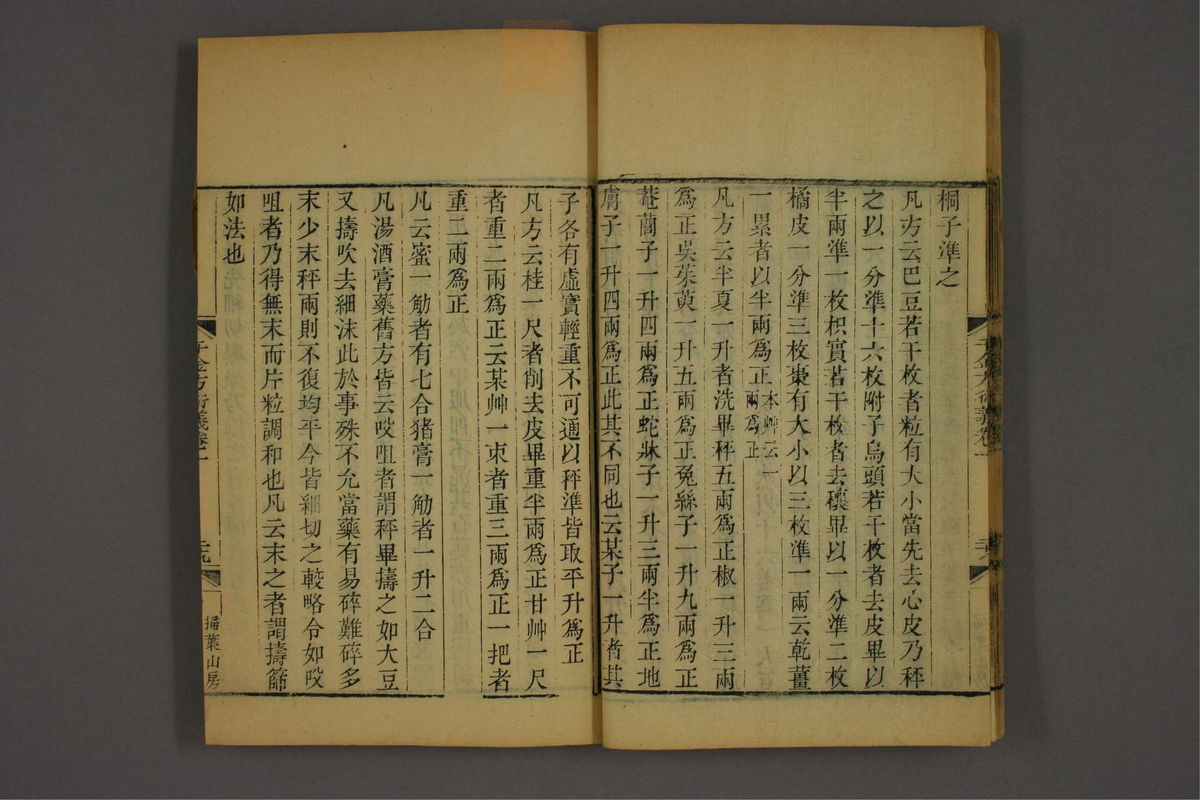 桐子準之
凡方云巴豆若干枚者粒有大小當先去心皮乃秤
之以一分準十六枚附子烏頭若干枚者去皮畢以
半兩準一枚枳實若干枚者去穰畢以一分準二枚
橘皮一分準三枚棗有大小以三枚準一兩云乾薑
一累者以半兩爲正本艸云一兩爲正
凡方云半夏一升者洗畢秤五兩爲正椒一升三兩
爲正吳茱萸一升五兩爲正兔絲子一升九兩爲正
菴䕡子一升四兩爲正蛇牀子一升三兩半爲正地
膚子一升四兩爲正此其不同也云某子一升者其
子各有虛實輕重不可通以秤準皆取平升爲正
凡方云桂一尺者削去皮畢重半兩爲正甘艸一尺
者重二兩爲正云某艸一束者重三兩爲正一把者
重二兩爲正
凡云蜜一觔者有七合猪膏一觔者一升二合
凡湯酒膏藥舊方皆云㕮咀者謂秤畢擣之如大豆
又擣吹去細沫此於事殊不允當藥有易碎難碎多
末少末秤兩則不復均平今皆細切之較略令如㕮
咀者乃得無末而片粒調和也凡云末之者謂擣篩
如法也
千金方衍義卷一
二十九
掃葉山房